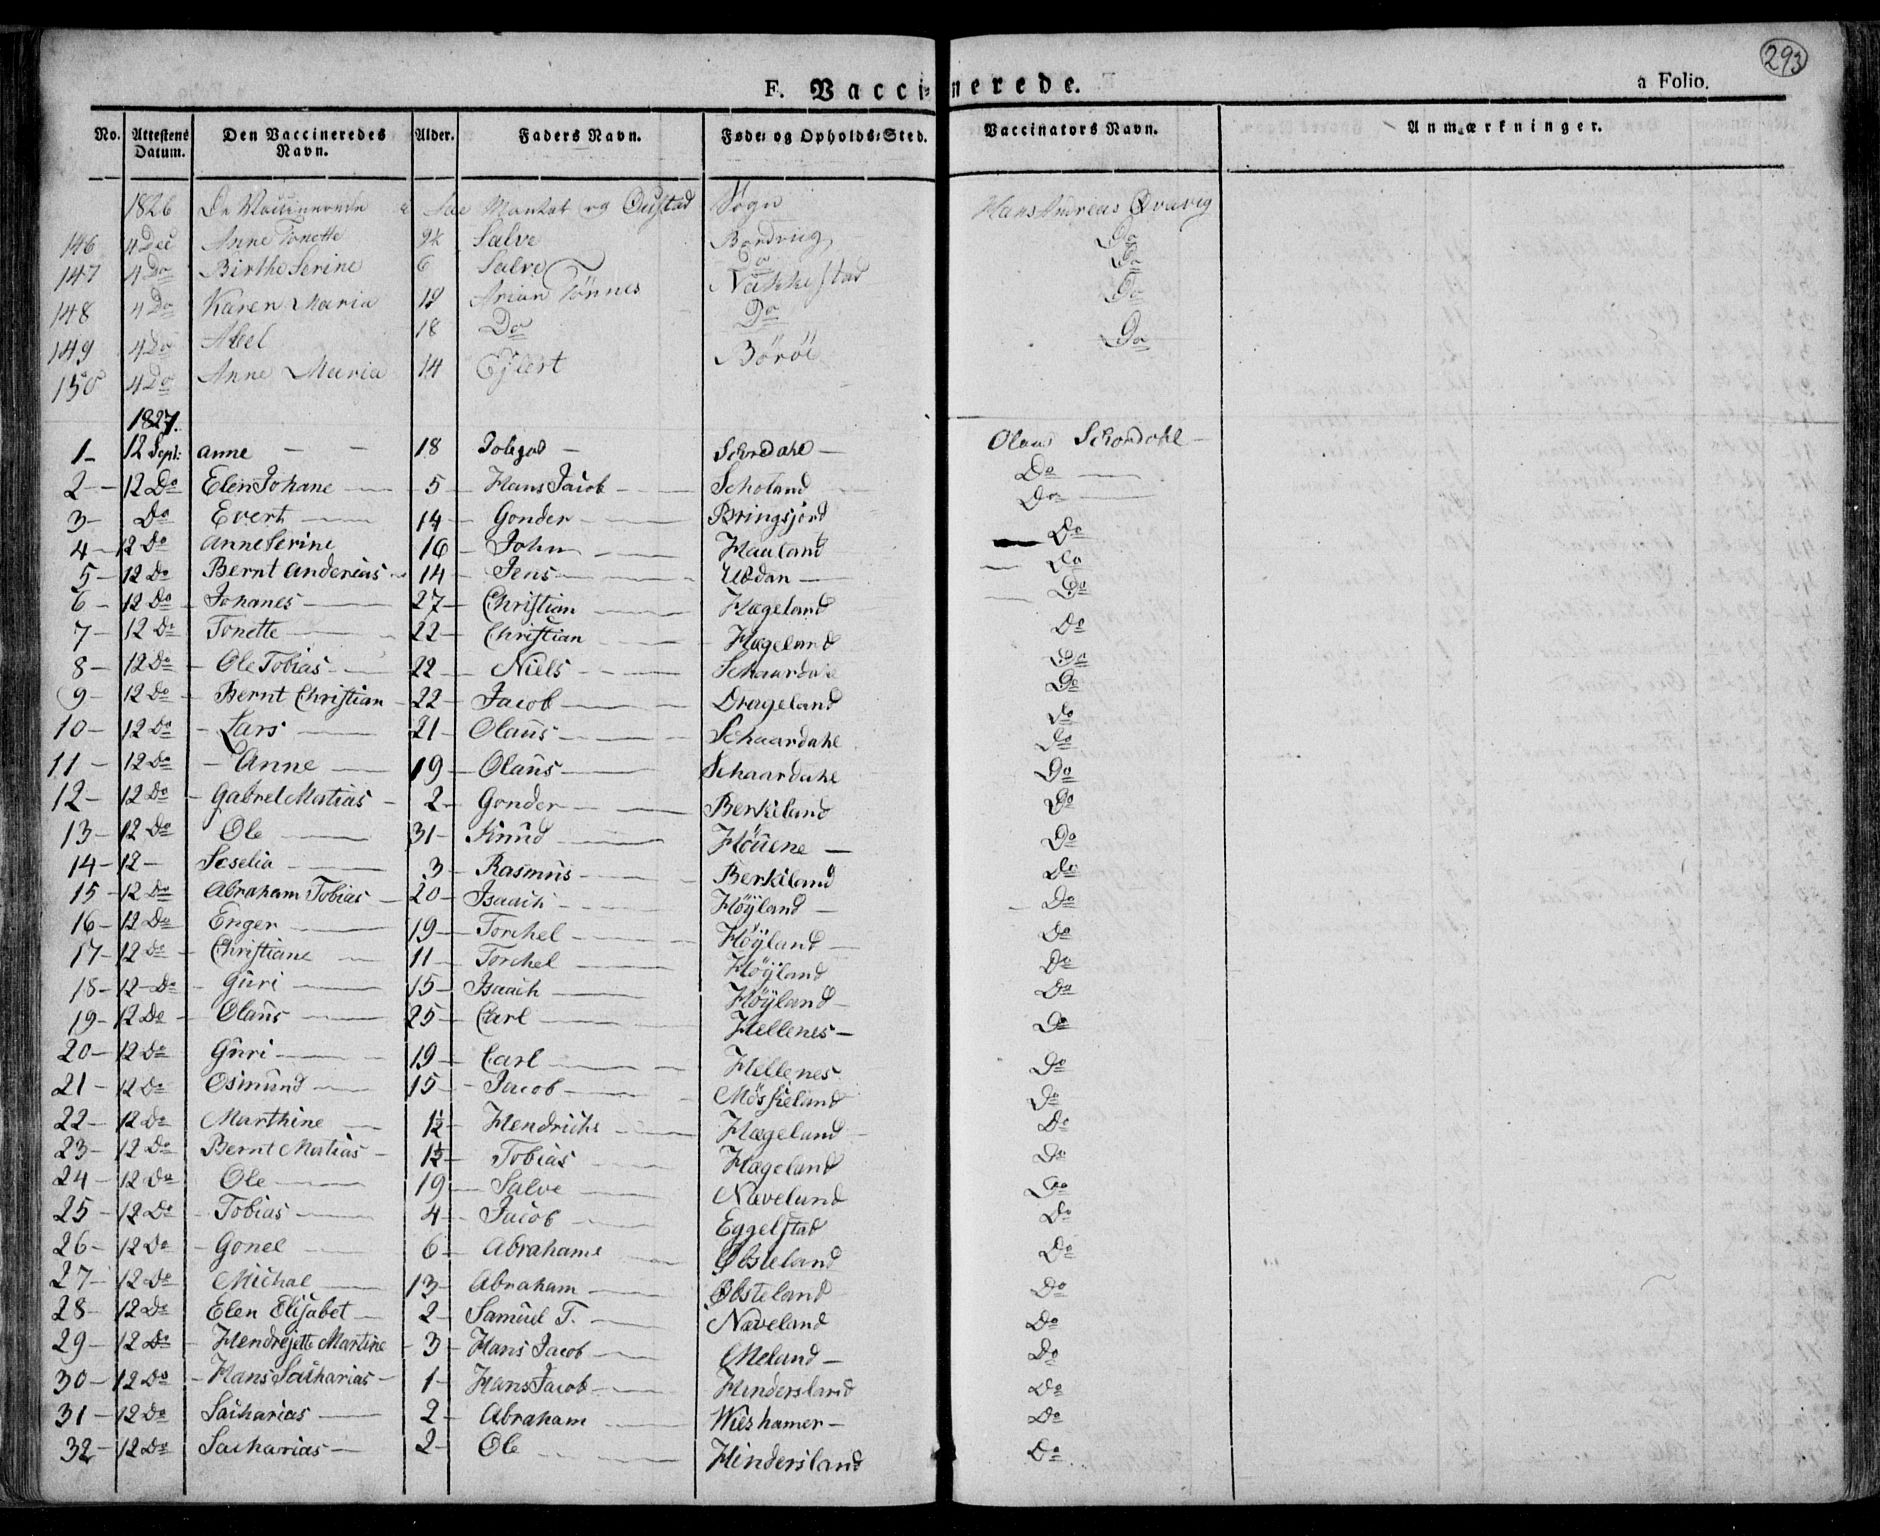 293
F. Vaccinerede. a Folio.
No. Attestens Datum. Den Vaccineredes Navn. Alder. Faders Navn. Føde- og Opholds-Sted. Vaccinators Navn. Anmærkninger.
1826 De Vaccinerede og Sogn Hans Andreas
146 4 Dec Anne Tonette Salve Do
147 4 Do Birthe Serine 6 Salve Do Do
148 4 Do Karen Maria Arian Tønnes Nakkestad Do
149 4 Do Abel 18 Do Do Do
150 4 Do Anne Maria 14 Ejlert Børøe
1827.
1 - 12 Sept: Anne - - 18 - Schordahl - Olaus Schordahl -
2 - 12 Do Elen Johane - 5 - Hans Jacob - Scholand Do -
3 - Do Evert - 14 - Gonder - Bringsjord Do -
4 - 12 Do Anne Serine 16 - John - Hauland Do
5 - 12 Do Bernt Anderias - 14 - Jens - Uddan - Do
6 - 12 Do Johanes - 27 - Christian Hægeland Do
7 - 12 Do Tonette - 22 - Christian - Hægeland Do
8 - 12 Do - Ole Tobias - 22 - Niels - Schaardahl Do
9 - 12 Do - Bernt Christian - 22 - Jacob - Drageland Do
10 - 12 Do - Lars - 21 - Olaus - Schaardahl Do
11 - 12 Do - Anne - 19 - Olaus - Schaardahl Do
12 - 12 Do - Gabrel Matias - 2 - Gonder - Berkeland Do
13 - 12 Do Ole - 31 - Knud - Høuene - Do
14 - 12 - Seselia - 3 - Rasmus - Berkeland Do
15 - 12 Do Abraham Tobias - 20 - Isaach - Høÿland - Do
16 - 12 Do - Enger - 19 - Torchel - Høÿland - Do
17 - 12 Do - Christiane - 11 - Torchel - Høÿland Do
18 - 12 - Do - Guri - 15 - Isaach - Høÿland - Do
19 - 12 Do - Olaus - 25 - Carl - Hellenes - Do
20 - 12 Do Guri - 19 - Carl - Hellenes Do
21 - 12 Do Osmund - 15 - Jacob - Do
22 - 12 Do Marthine - 1½ - Hendrichs - Hægeland - Do
23 - 12 Do Bernt Matias - 1½ - Tobias - Hægeland Do
24 - 12 Do - Ole - 19 - Salve - Naveland Do
25 - 12 Do - Tobias - 4 - Jacob - Eggelstad Do
26 - 12 Do - Gonel - 6 - Abrahams - Øbsteland Do
27 - 12 Do - Michal - 13 - Abraham - Øbsteland Do
28 - 12 Do - Elen Elisabet - 2 - Samuel T. - Naveland Do
29 - 12 Do - Hendrejette Martine - 3 - Hans Jacob - Meland - Do
30 - 12 Do - Hans Sacharias - 1 - Hans Jacob - Hindersland Do
31 - 12 Do Sacharias - 2 - Abraham - Wieshamer - Do
32 - 12 Do Sacharias - 2 - Ole - Hindersland Do